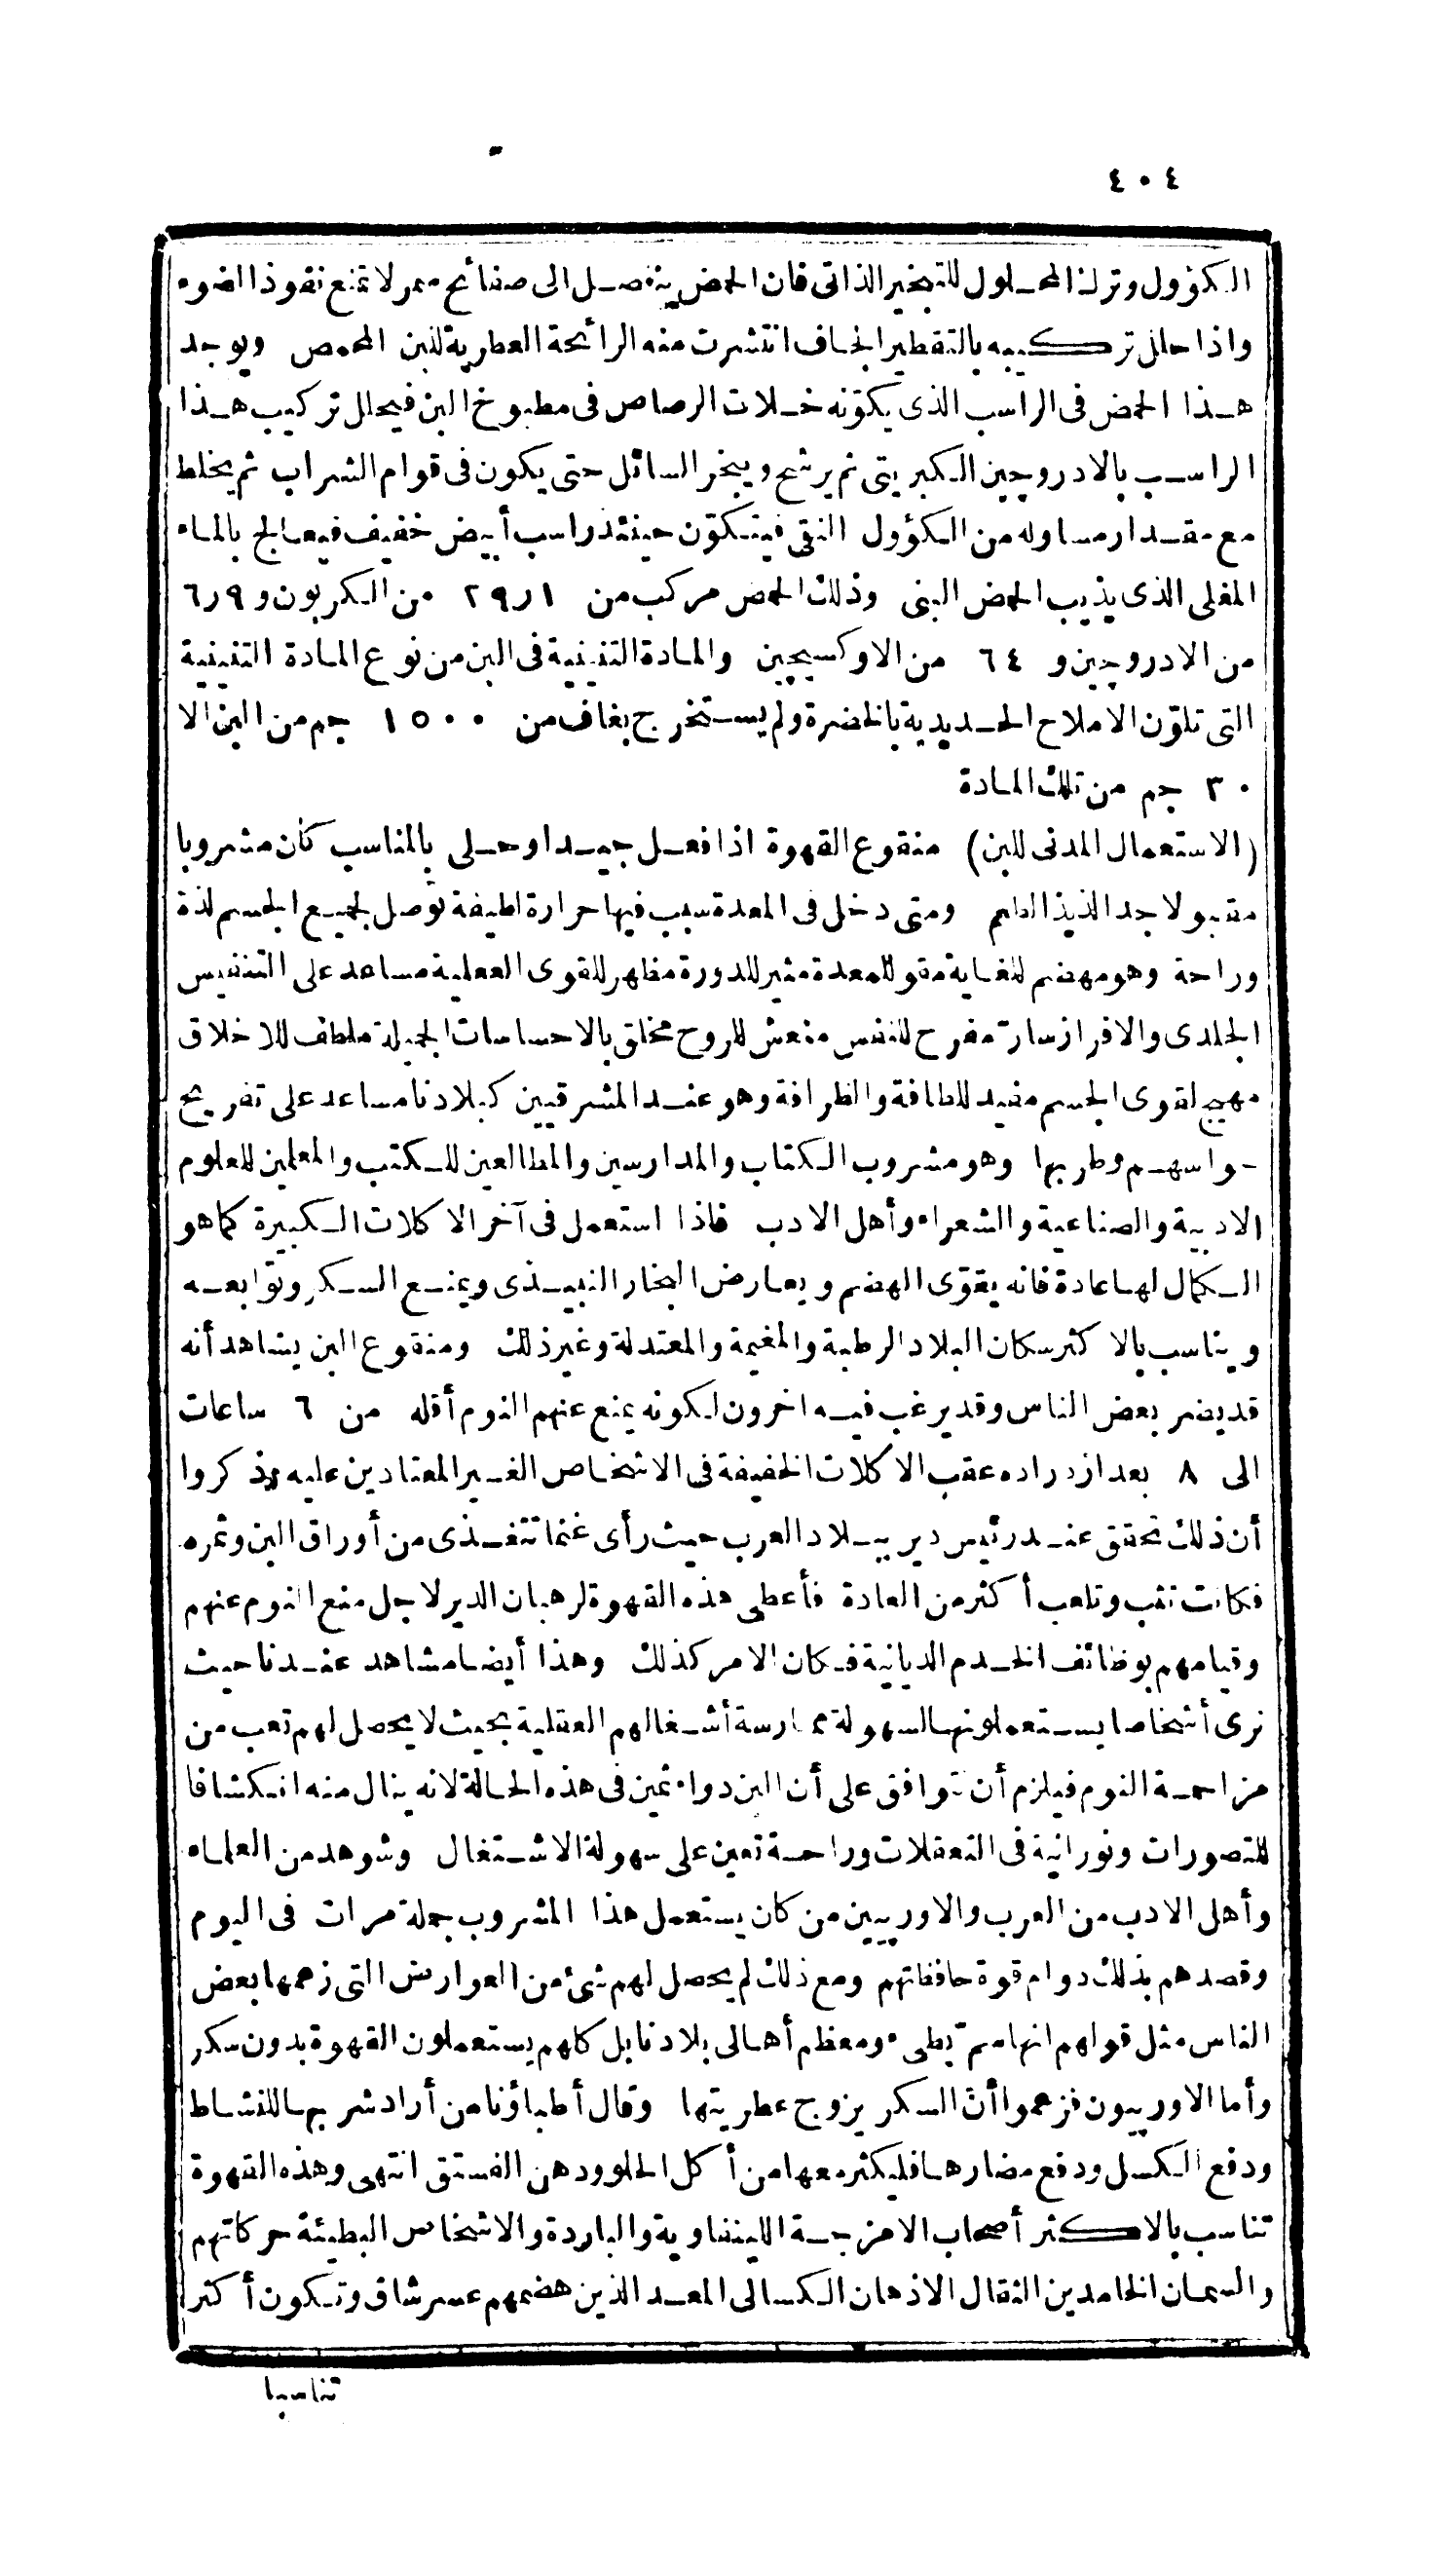 ٤٠٤
الكؤول وترك المحلول للتبخير الذاتى فان الحمض ينفصل الى صفائح ممر لا تمنع نفوذ الضوء
واذا حلل تركيبه بالتقطير الجاف انتشرت منه الرائحة العطرية للبن المحمص ويوجد
هذا الحمض فى الراسب الذى يكوّنه خلات الرصاص فى مطبوخ البن فيحلل تركيب هذا
الراسب بالادروچين الكبريتى ثم يرشح ويبخر السائل حتى يكون فى قوام الشراب ثم يخلط
مع مقدار مساو له من الكؤول النقى فيتكوّن حينئذ راسب أبيض خفيف فيعالج بالماء
المغلى الذى يذيب الحمض البنى وذلك الحمض مركب من ٢٩ر١ من الكربون و ٦ر٩
من الادروچين و ٦٤ من الاوكسيچين والمادة التنينية فى البن من نوع المادة التنينية
التى تلوّن الاملاح الحديدية بالخضرة ولم يستخرج بغاف من ١٥٠٠ جم من البن الا
٣٠ جم من تلك المادة
(الاستعمال المدنى للبن) منقوع القهوة اذا فعل جيدا وحلى بالمناسب كان مشروبا
مقبولا جدا لذيذ الطعم ومتى دخل فى المعدة سبب فيها حرارة لطيفة توصل لجميع الجسم لذة
وراحة وهو مهضم للغاية مقو للمعدة مثير للدورة مظهر للقوى العقلية مساعد على التنفيس
الجلدى والافراز سارّ مفرح للنفس منعش للروح مخلق بالاحساسات الجميلة ملطف للاخلاق
مهيج لقوى الجسم مفيد للطافة والظرافة وهو عند المشرقيين كبلادنا مساعد على تفريح
حواسهم وطربها وهو مشروب الكتاب والمدارسين والمطالعين للكتب والمعلمين للعلوم
الادبية والصناعية والشعراء وأهل الادب فاذا استعمل فى آخر الاكلات الكبيرة كما هو
الكمال لها عادة فانه يقوّى الهضم ويعارض البخار النبيذى ويمنع السكر وتوابعه
ويناسب بالاكثر سكان البلاد الرطبة والمغيمة والمعتدلة وغير ذلك ومنقوع البن يشاهد أنه
قد يضر بعض الناس وقد يرغب فيه اخرون لكونه يمنع عنهم النوم أقله من ٦ ساعات
الى ٨ بعد ازدراده عقب الاكلات الخفيفة فى الاشخاص الغير المعتادين عليه وذكروا
أن ذلك تحقق عند رئيس دير ببلاد العرب حيث رأى غنما تتغذى من أوراق البن وثمره
فكانت تثب وتلعب أكثر من العادة فأعطى هذه القهوة لرهبان الدير لاجل منع النوم عنهم
وقيامهم بوظائف الخدم الديانية فكان الامر كذلك وهذا أيضا مشاهد عندنا حيث
نرى أشخاصا يستعملونها لسهولة ممارسة أشغالهم العقلية بحيث لا يحصل لهم تعب من
مزاحمة النوم فيلزم أن توافق على أن البن دواء ثمين فى هذه الحالة لانه ينال منه انكشافا
للتصورات ونورانية فى التعقلات وراحة تعين على سهولة الاشتغال وشوهد من العلماء
وأهل الادب من العرب والاوريبين من كان يستعمل هذا المشروب جملة مرات فى اليوم
وقصدهم بذلك دوام قوة حافظاتهم ومع ذلك لم يحصل لهم شئ من العوارض التى زعمها بعض
الناس مثل قولهم انها سمّ بطىء ومعظم أهالى بلادنا بل كلهم يستعملون القهوة بدون سكر
وأما الاوريبون فزعموا أنّ السكر يزوج عطريتها وقال أطباؤنا من أراد شربها للنشاط
ودفع الكسل ودفع مضارها فليكثر معها من أكل الحلو ودهن الفستق انتهى وهذه القهوة
تناسب بالاكثر أصحاب الامزجة اللينفاوية والباردة والاشخاص البطيئة حركاتهم
والسمان الخامدين الثقال الاذهان الكسالى المعد الذين هضمهم عسر شاق وتكون أكثر
تناسبا